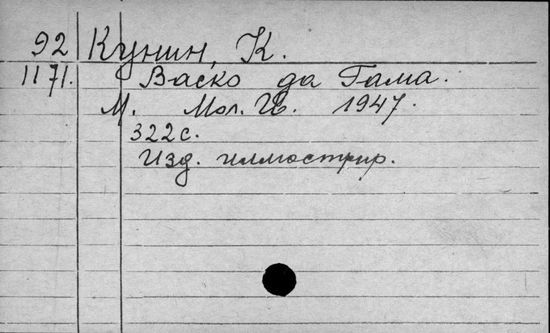 92 Кунин, К.
1171. Васко да Гама.
М. Мол. Гв. 1947.
322 с.
Изд. иллюстрир.